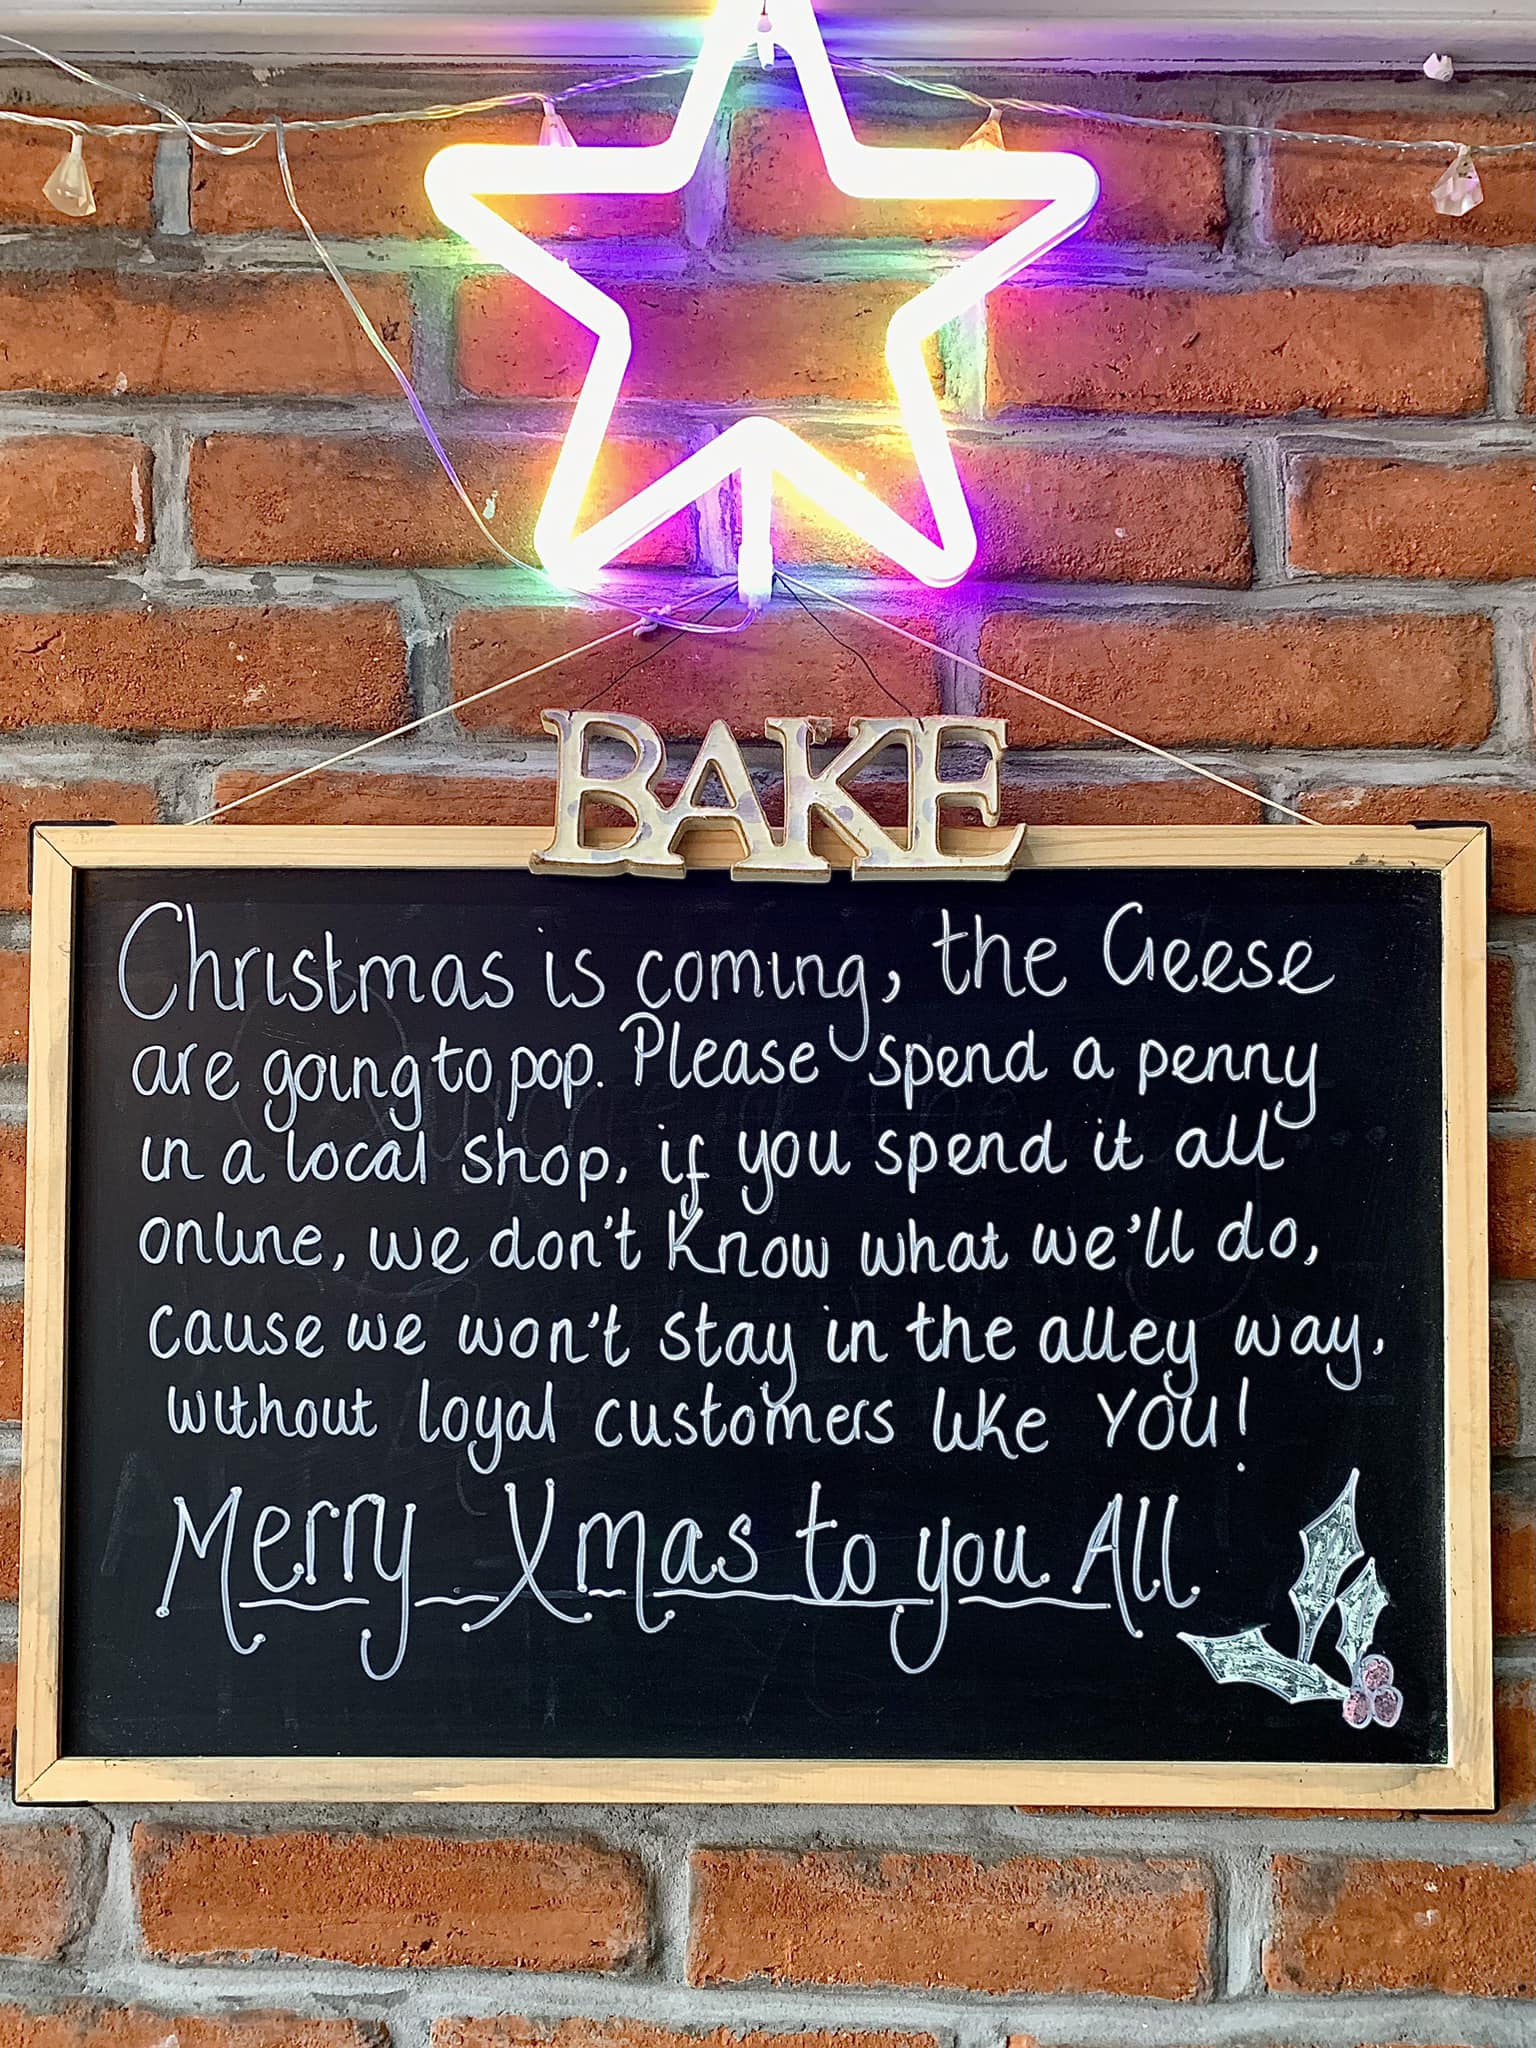 BAKE
Christmas is coming, the Geese
are going to pop. Please spend a penny
in a local shop, if you spend it all
online, we don't know what we'll do,
cause we won't stay in the alley way,
without loyal customers like YOU!
Merry Xmas to you All